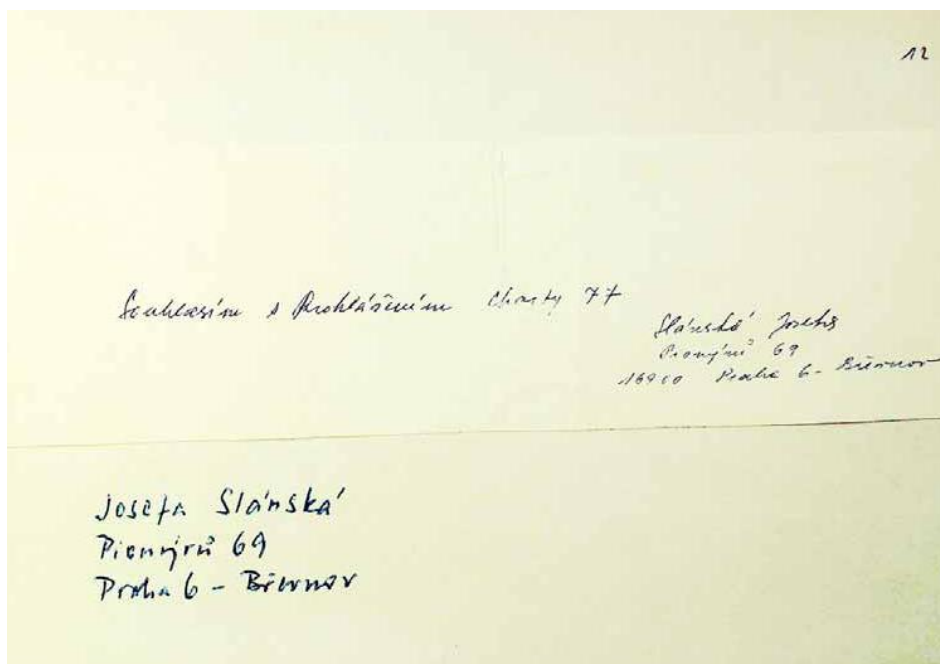 12
Souhlasím s Prohlášením Charty 77
Slánská Josefa
Pionýrů 69
16900 Praha 6 - Břevnov
Josefa Slánská
Pionýrů 69
Praha 6 - Břevnov